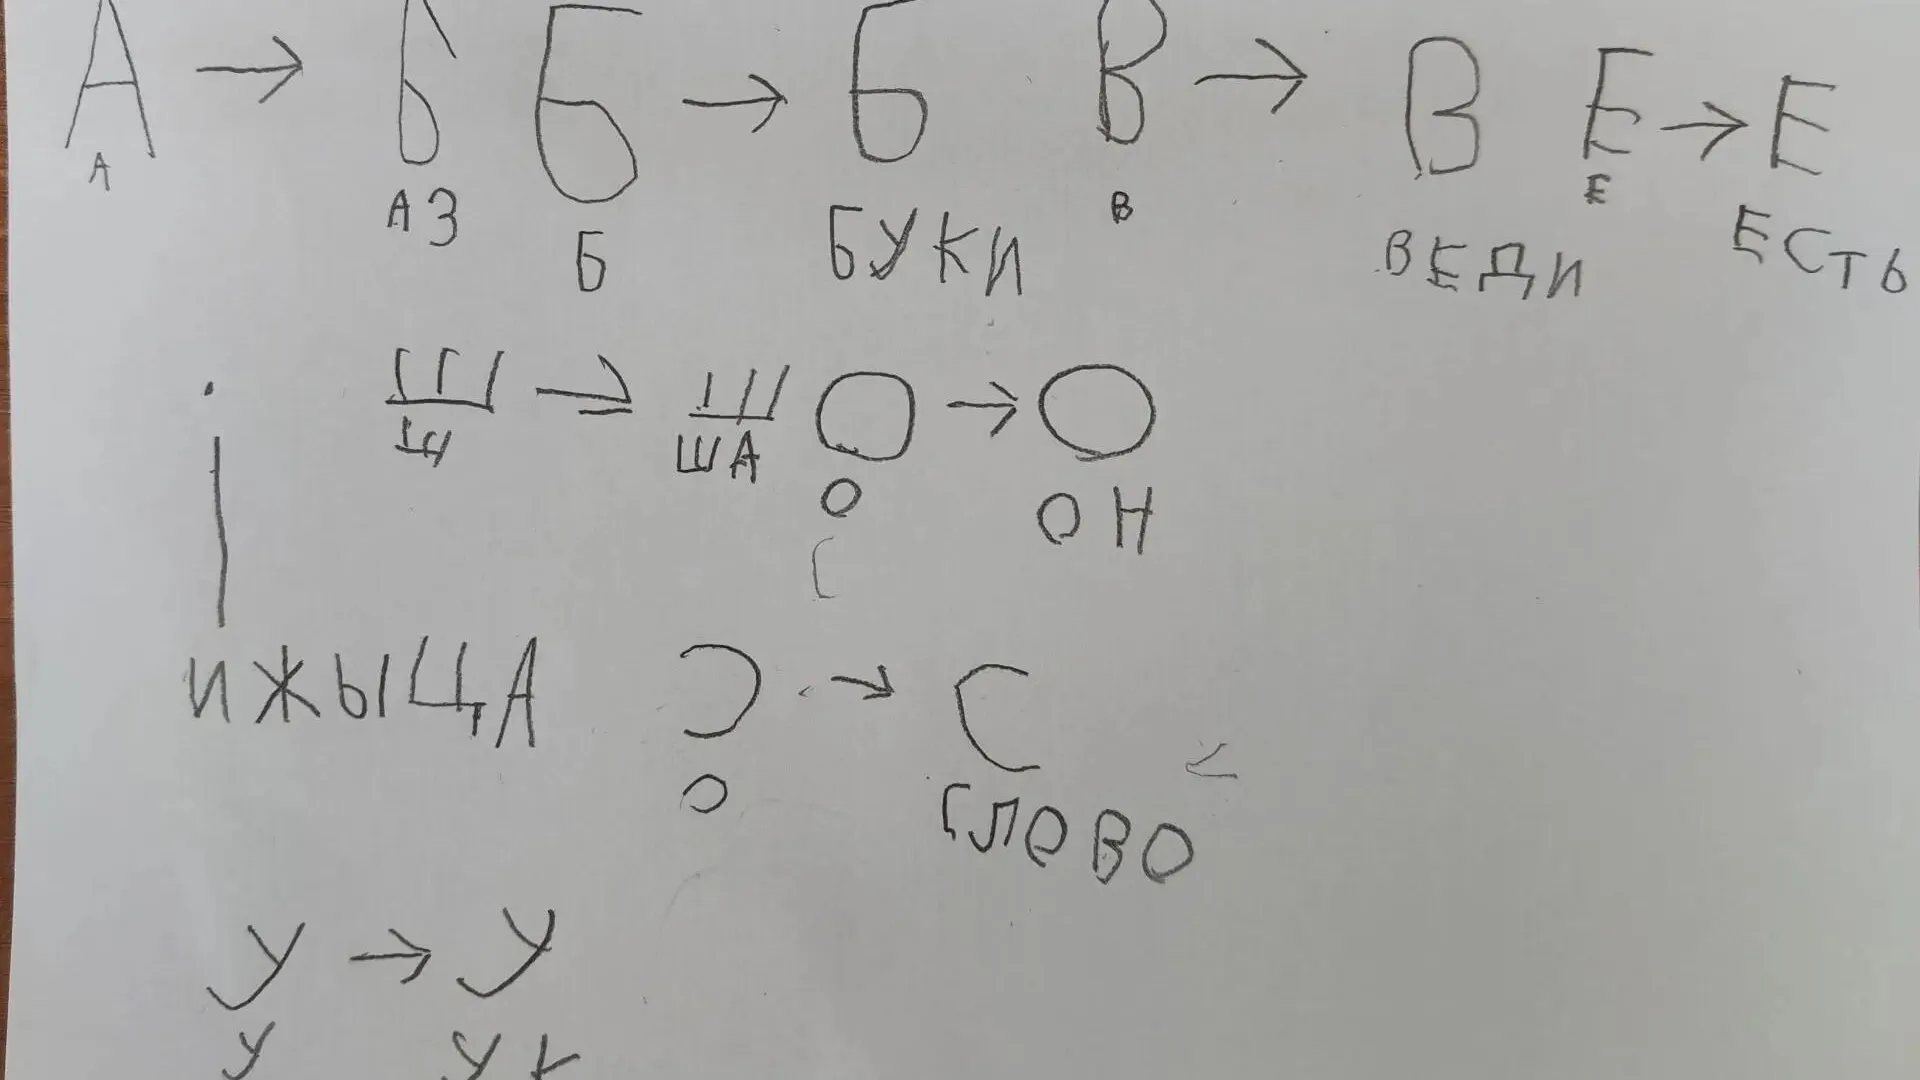 А → Б Б → Б В → В Е → Е
А АЗ Б БУКИ В ВЕДИ Е ЕСТЬ
Ш → Ш О → О
Ш ША О ОН
С
І
ИЖЫЦА
Ɔ → С
О СЛОВО
У → У
У УК